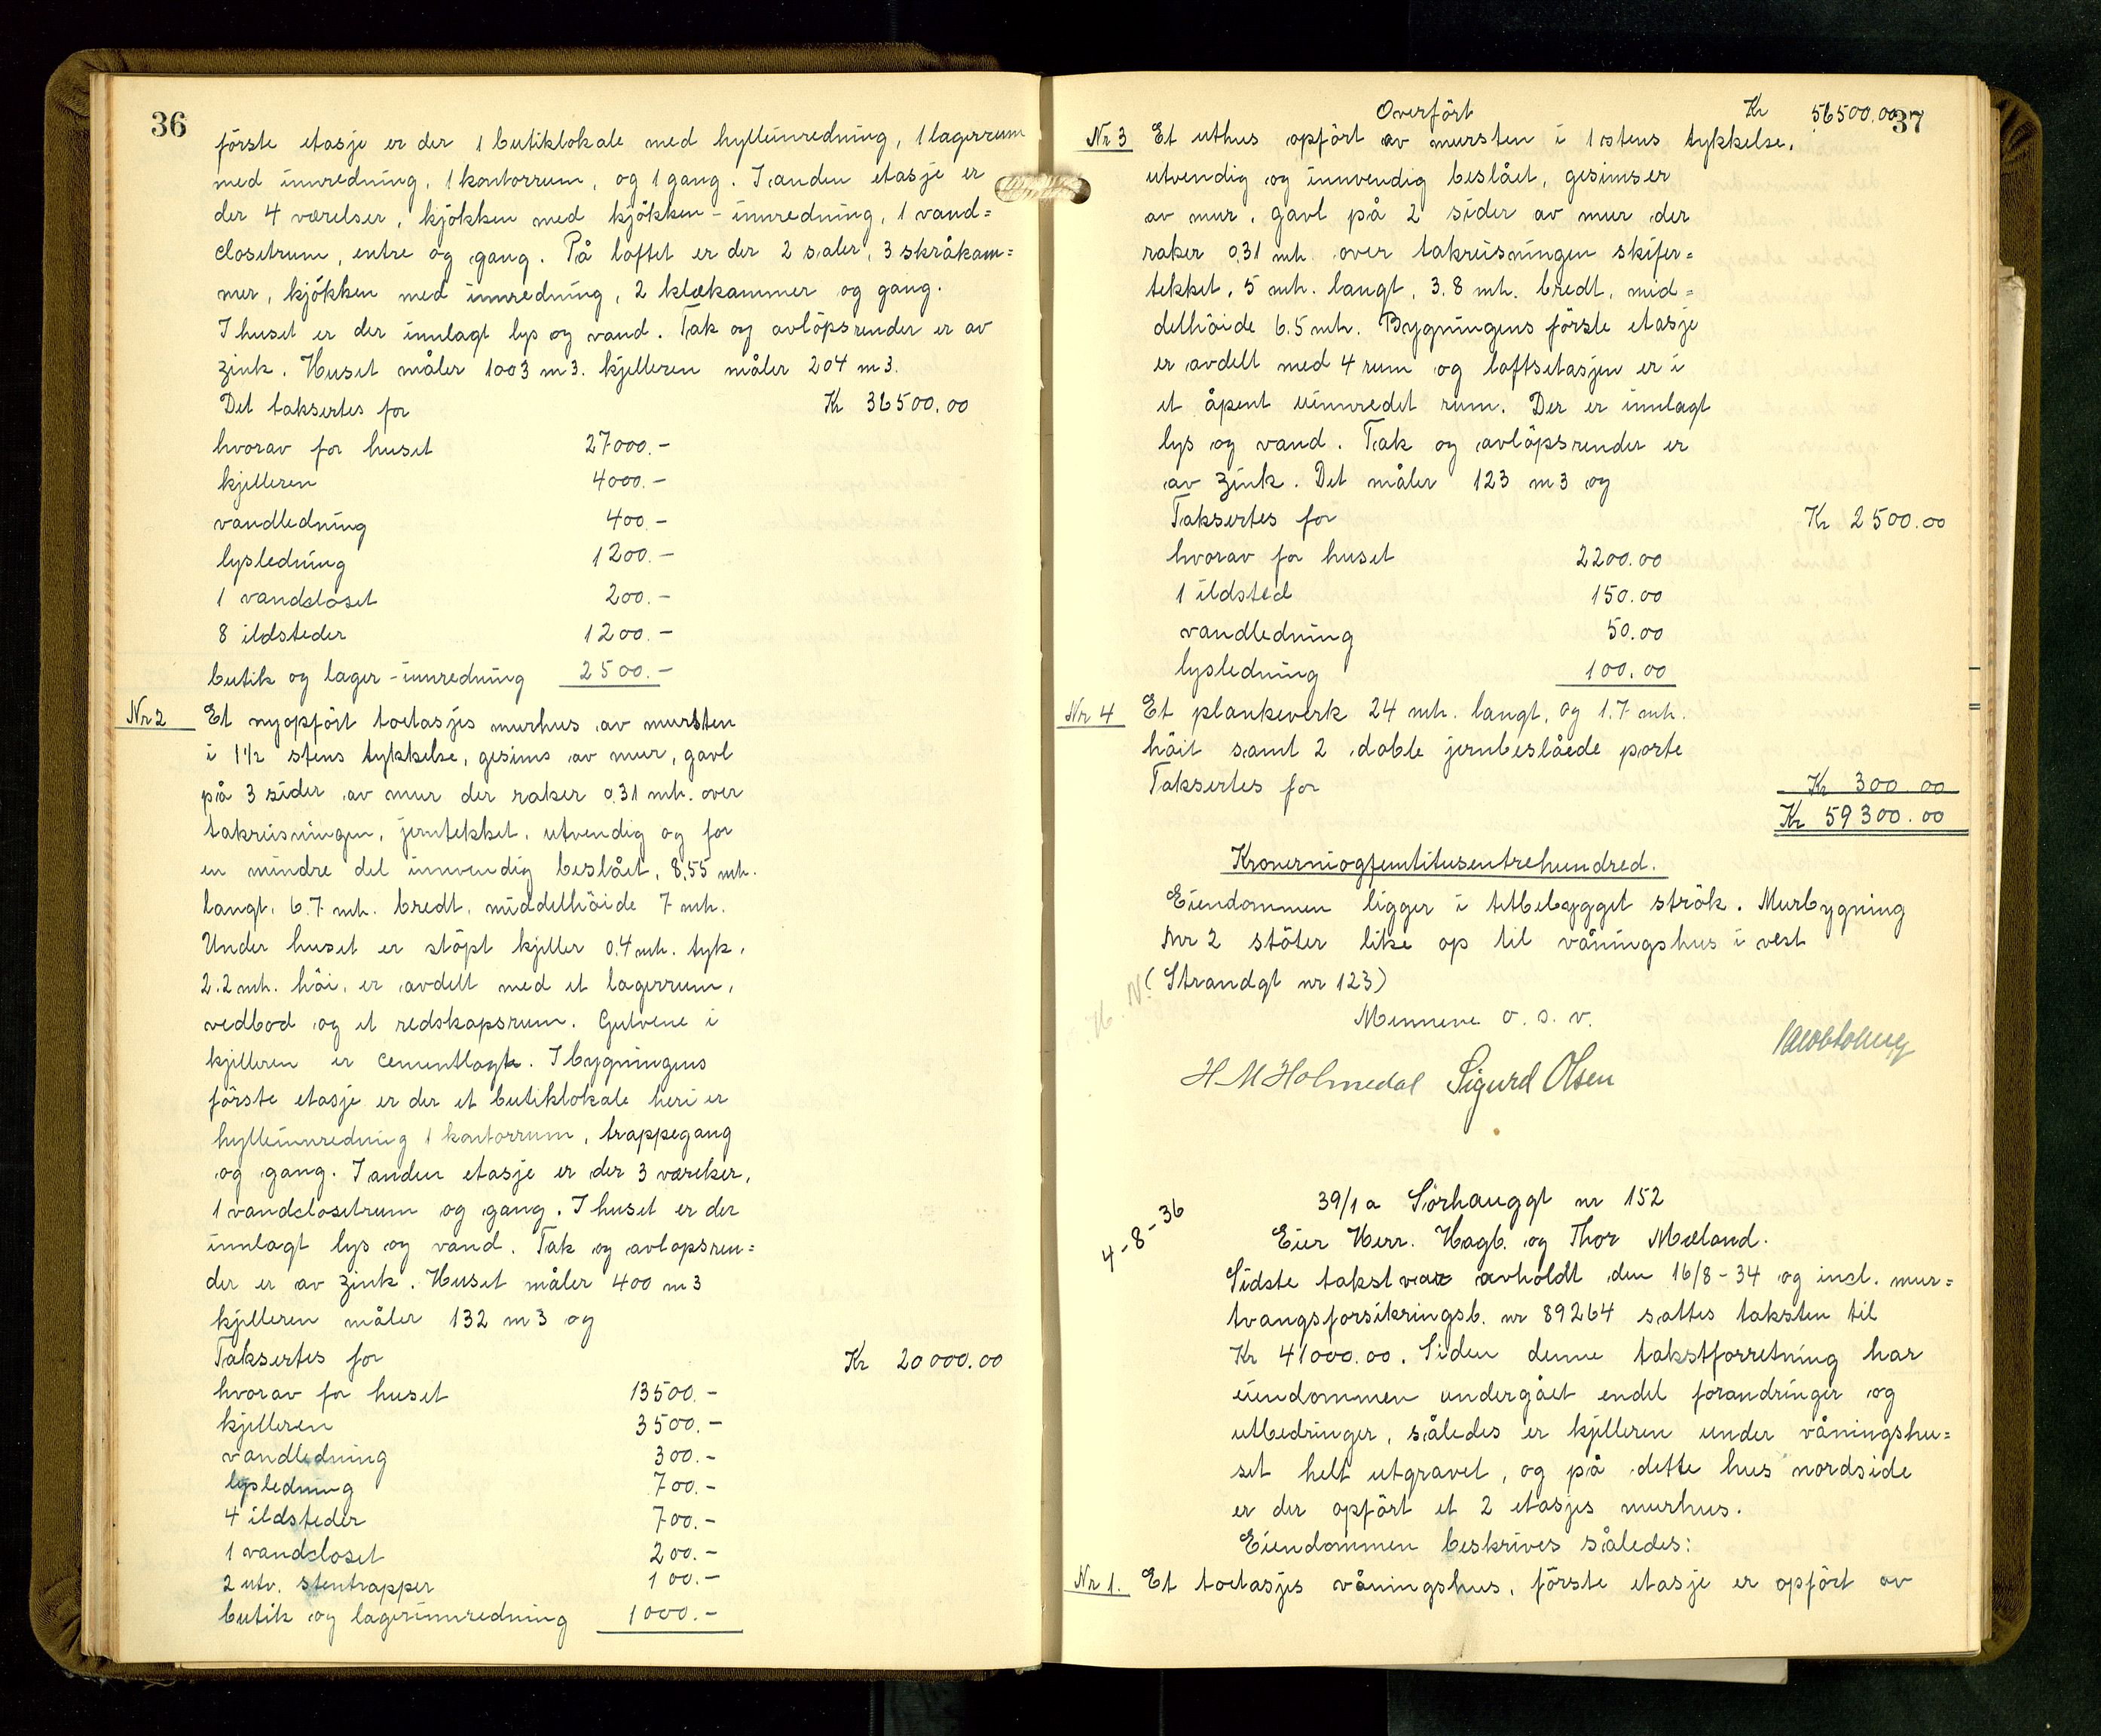 36
förste etasje er der 1 butiklokale med hylleinnredning, 1 lagerrum
med innredning, 1 kontorrum, og 1 gang. I anden etasje er
der 4 værelser, kjökken med kjökken-innredning, 1 vand=
closetrum, entre og gang. På loftet er der 2 saler, 3 skråkam=
mer, kjökken med innredning, 2 klækammer og gang.
I huset er der innlagt lys og vand. Tak og avlöpsrender er av
zink. Huset måler 1003 m3. kjelleren måler 204 m3.
Det taksertes for Kr 36500.00
hvorav for huset 27000.-
kjelleren 4000.-
vandledning 400.-
lysledning 1200.-
1 vandcloset 200.-
8 ildsteder 1200.-
butik og lager-innredning 2500.-
Nr 2 Et nyopfört toetasjes murhus av mursten
i 1 1/2 stens tykkelse, gesims av mur, gavl
på 3 sider av mur der raker 0.31 mh. over
takreisningen, jerntekket, utvendig og for
en mindre del innvendig beslået, 8.55 mh.
langt, 6.7 mh. bredt, middelhöide 7 mh.
Under huset er stöpt kjeller 0.4 mh. tyk,
2.2 mh. höi, er avdelt med et lagerrum,
vedbod og et redskapsrum. Gulvene i
kjelleren er cementlagte. I bygningens
förste etasje er der et butiklokale heri er
hylleinnredning 1 kontorrum, trappegang
og gang. I anden etasje er der 3 værelser,
1 vandclosetrum og gang. I huset er der
innlagt lys og vand. Tak og avlöpsren=
der er av zink. Huset måler 400 m3
kjelleren måler 132 m3 og
Taksertes for Kr 20000.00
hvorav for huset 13500.-
kjelleren 3500.-
vandledning 300.-
lysledning 700.-
4 ildsteder 700.-
1 vandcloset 200.-
2 utv. stentrapper 100.-
butik og lagerinnredning 1000.-
37
Overfört Kr 56500.00
Nr 3 Et uthus opfört av mursten i 1 stens tykkelse,
utvendig og innvendig beslået, gesimser
av mur, gavl på 2 sider av mur der
raker 0.31 mh. over takreisningen skifer=
tekket, 5 mh. langt, 3.8 mh. bredt, mid=
delhöide 6.5 mh. Bygningens förste etasje
er avdelt med 4 rum og loftsetasjen er i
et åpent uinnredet rum. Der er innlagt
lys og vand. Tak og avlöpsrender er
av zink. Det måler 123 m3 og
Taksertes for Kr 2500.00
hvorav for huset 2200.00
1 ildsted 150.00
vandledning 50.00
lysledning 100.00
Nr 4 Et plankeverk 24 mh. langt, og 1.7 mh.
höit samt 2 doble jernbeslåede porte
Taksertes for Kr 300.00
Kr 59300.00
Kronerniogfemtitusentrehundred.
Eiendommen ligger i tetbebygget strök. Murbygning
Nr 2 stöter like op til våningshus i vest
(Strandgt nr 123)
Mennene o. s. v.
H M Holmedal Sigurd Olsen
4-8-36
39/1 a Sörhauggt nr 152
Eier Herr. Hagb. og Thor Mæland.
Sidste takst var avholdt den 16/8-34 og incl. mur=
tvangsforsikringsb. nr 89264 sattes taksten til
Kr 41000.00. Siden denne takstforretning har
eiendommen undergået endel forandringer og
utbedringer, således er kjelleren under våningshu=
set helt utgravet, og på dette hus nordside
er der opfört et 2 etasjes murhus.
Eiendommen beskrives således:
Nr 1. Et toetasjes våningshus, förste etasje er opfört av